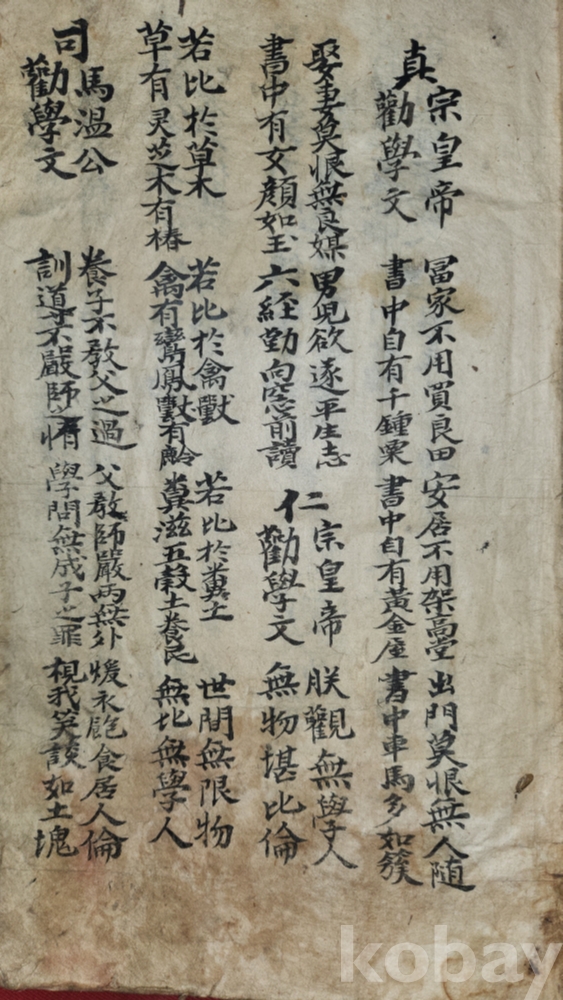 真宗皇帝
勸學文
冨家不用買良田
書中自有千鍾粟
安居不用架高堂
書中自有黃金屋
出門莫恨無人随
書中車馬多如簇
娶妻莫恨無良媒
書中有女顔如玉
男児欲遂平生志
六経勤向窓前讀
仁宗皇帝
勸學文
朕觀無學人
無物堪比倫
若比於草木
草有灵芝木有椿
若比於禽獸
禽有鸞鳳獸有麟
若比於糞土
糞滋五穀土養民
世間無限物
無比無學人
司馬温公
勸學文
養子不教父之過
訓道不嚴師之惰
父教師嚴兩無外
學問無成子之罪
煖衣飽食居人倫
視我笑談如土塊
kobay